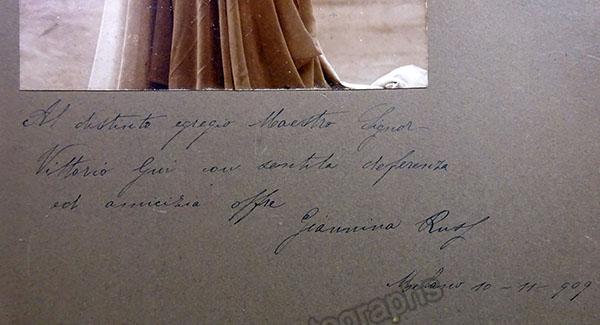 Al distinto egregio Maestro Signor
Vittorio Gui con sentita deferenza
ed amicizia offre
Giannina Russ
Milano 10-11-909